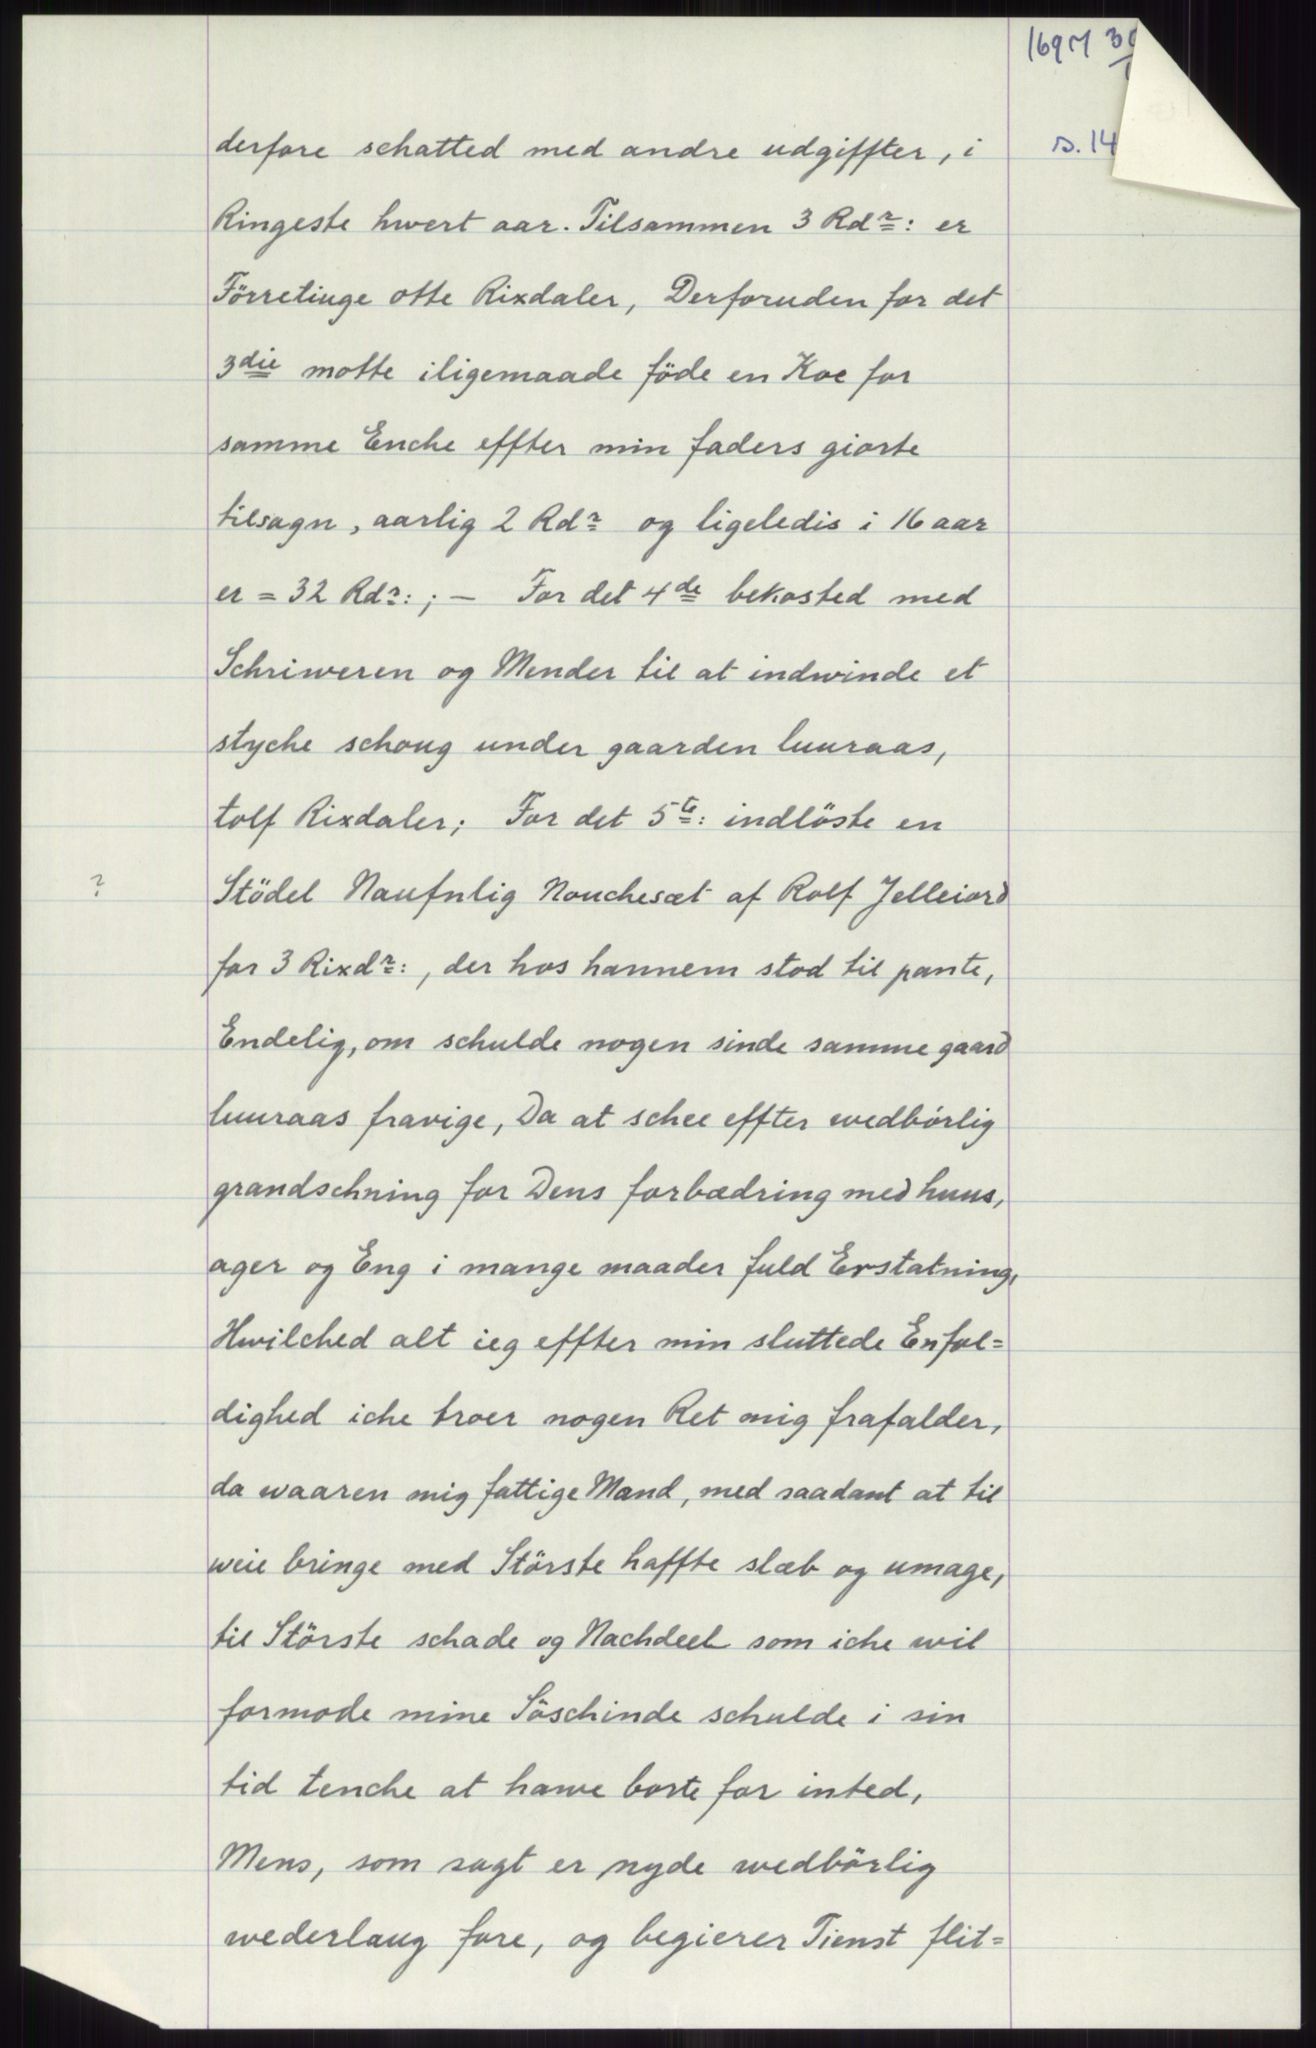 1697 30
s. 14
derfore schatted med andre udgiffter, i
Ringeste hwert aar. Tilsammen 3 Rdr: er
Förretiuge otte Rixdaler, Derforuden for det
3die motte iligemaade föde en Koe for
samme Enche effter min faders giorte
tilsagn, aarlig 2 Rdr og ligeledis i 16 aar
er = 32 Rdr: ; — For det 4de bekosted med
Schriweren og Mender til at indwinde et
styche schoug under gaarden luuraas,
tolf Rixdaler; For det 5te: indlöste en
? Stödel Naufnlig Nouchesæt af Rolf Jelleiord
for 3 Rixdr: , der hos hannem stod til pante,
Endelig, om schulde nogen sinde samme gaard
luuraas fravige, Da at schee effter wedbörlig
grandschning for Dens forbædring med huus,
ager og Eng i mange maader fuld Erstatning,
Hwilched alt ieg effter min sluttede Enfol=
dighed iche troer nogen Ret mig frafalder,
da waaren mig fattige Mand, med saadant at til
weie bringe med Störste haffte slæb og umage,
til Störste schade og Nachdeel som iche wil
formode mine Söschinde schulde i sin
tid tenche at hawe borte for inted,
Mens, som sagt er nyde wedbörlig
wederlaug fore, og begierer Tienst flit=